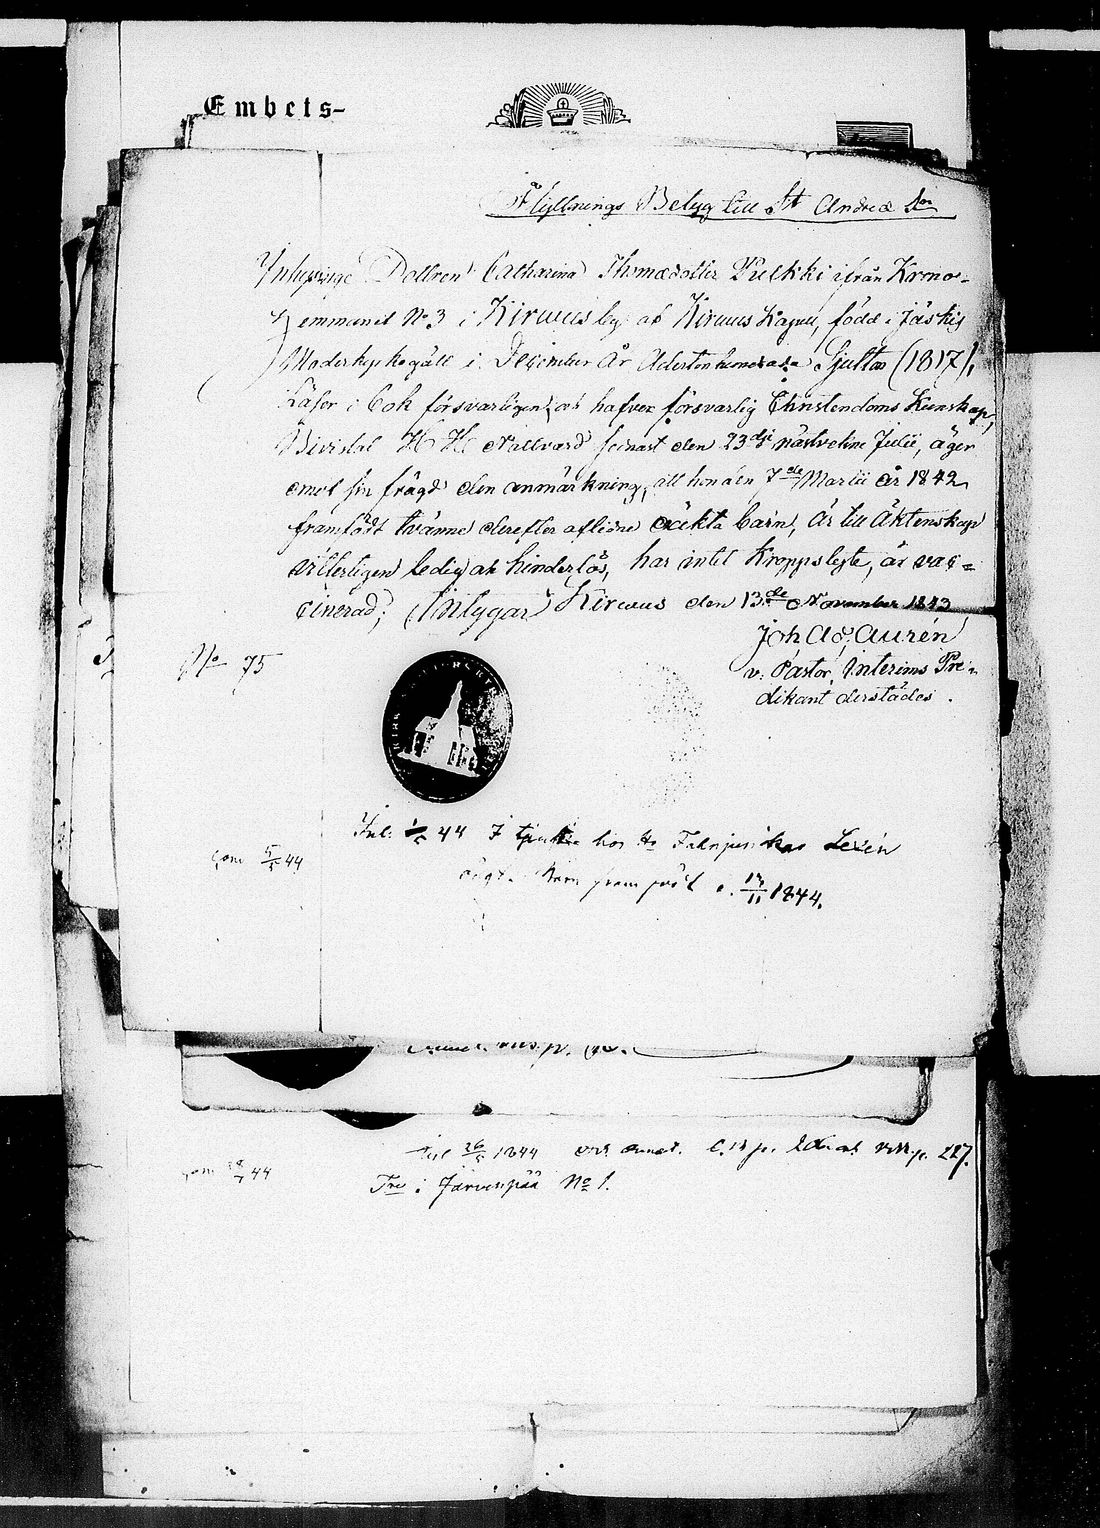 Embets-
Flyttnings Betyg till St Andreæ Sn
Inhysinge Dottren Catharina Thomædotter Pulkki ifrån Krono-
hemmanet No 3 i Kirwus by af Kirwus Kapell, född i Jäskis
Moderkyrkogäll i December År Adertonhundrade Sjutton (1817),
Läser i bok försvarligen, och hafver försvarlig Christendoms Kunskap,
Bivistat H. H. Nattvard senast den 23dje nästvekne Julii, äger
emot sin frägd den anmärkning, att hon den 7de Martii år 1842
framfödt tvänne derefter aflidne oäkta barn, Är till Äktenskap
vitterligen ledig och hinderlös, har intet Kroppslyte, är vac=
cinerad; Intygar Kirwus den 13de November 1843
Joh Ad, Aurén
v. Pastor, Interims Pre-
dikant derstädes.
No 75
44 I tjenst hos
Lexén
44
Barn framfödt d. 13/11 1844.
26/5 1844
p. 227.
44
i Järvenpää No 1.